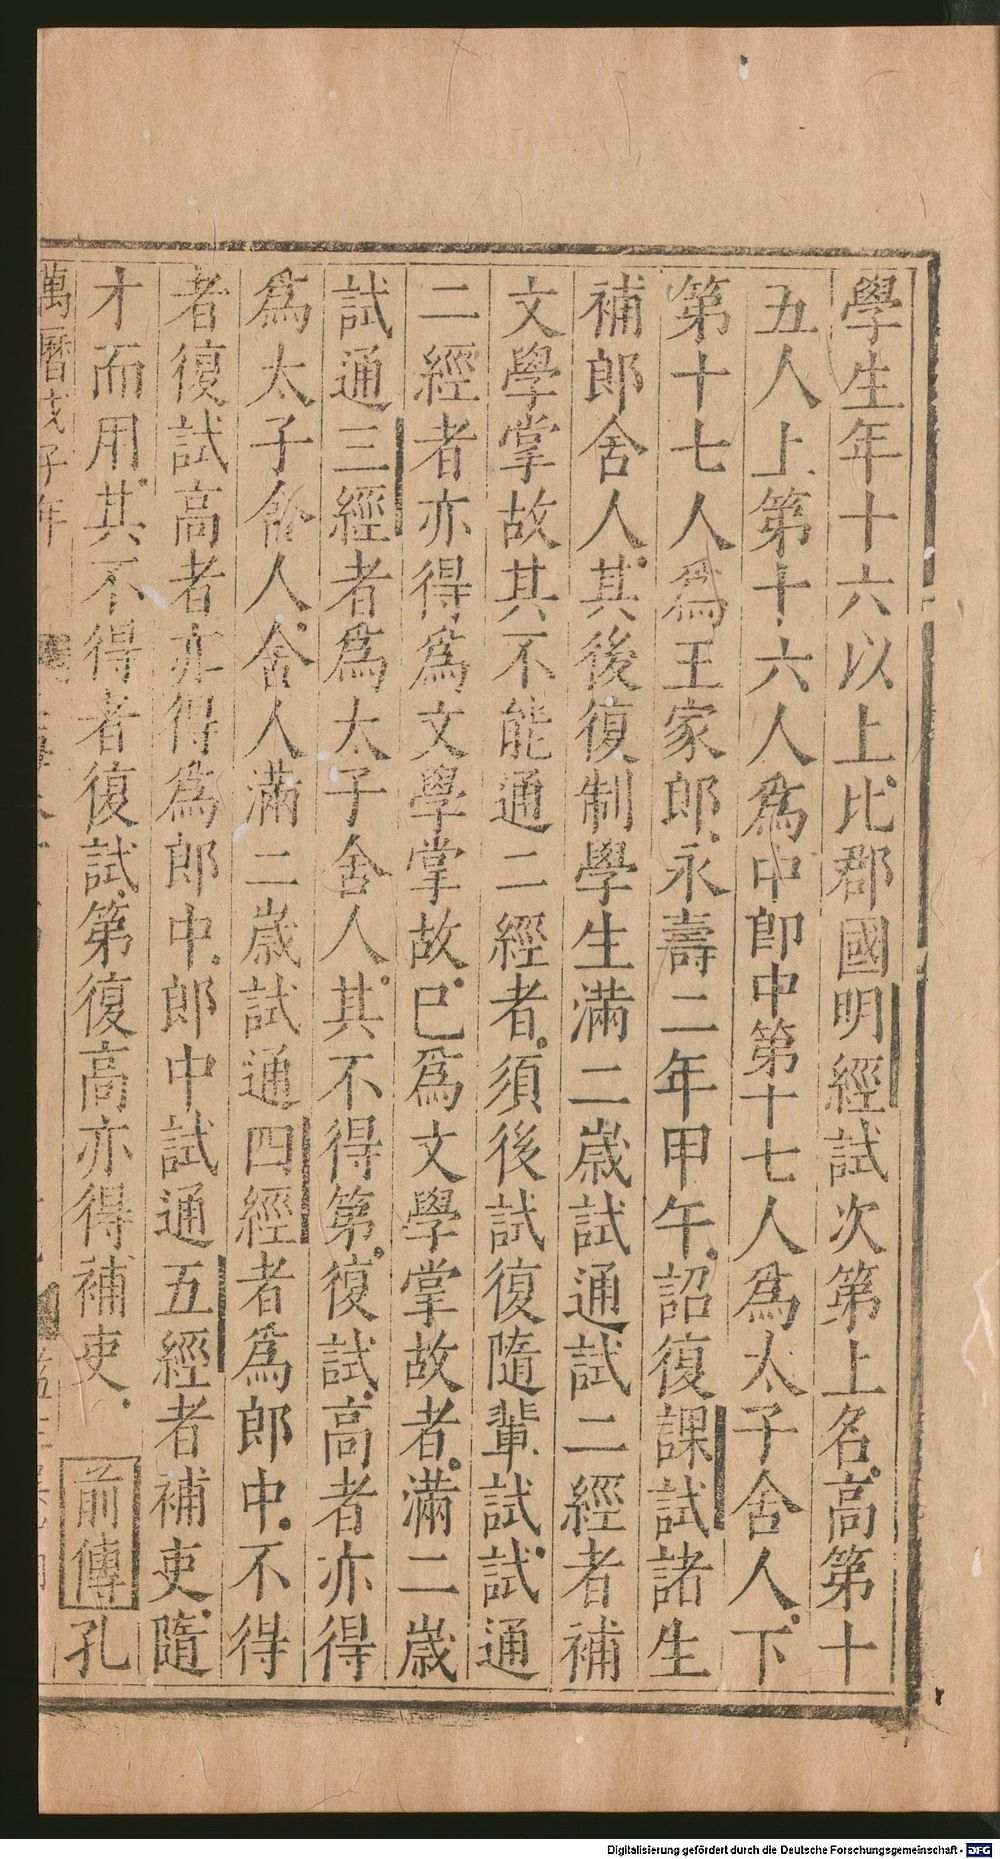 學生年十六以上比郡國明經試次第上名高第十
五人上第十六人爲中郎中第十七人爲太子舍人下
第十七人爲王家郎永壽二年甲午詔復課試諸生
補郎舍人其後復制學生滿二歲試通試二經者補
文學掌故其不能通二經者須後試復隨輩試試通
二經者亦得爲文學掌故已爲文學掌故者滿二歲
試通三經者爲太子舍人其不得第復試高者亦得
爲太子舍人舍人滿二歲試通四經者爲郎中不得
者復試高者亦得爲郎中郎中試通五經者補吏隨
才而用其不得者復試第復高亦得補吏前傳孔
萬曆戊子年
Digitalisierung gefördert durch die Deutsche Forschungsgemeinschaft - DFG